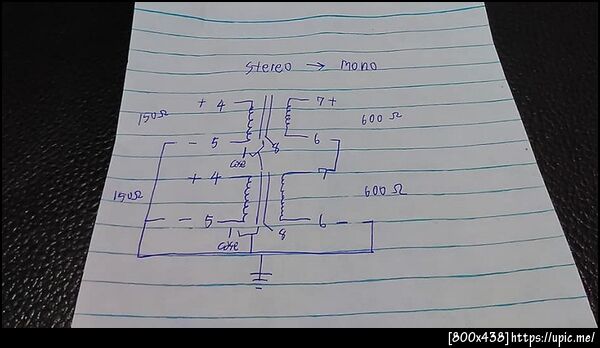 Stereo → mono
+ 4 7 +
150Ω 600 Ω
- 5 6
1 8
case
+ 4 7
150Ω 600 Ω
- 5 6 -
1 8
case
[800x438] https://upic.me/